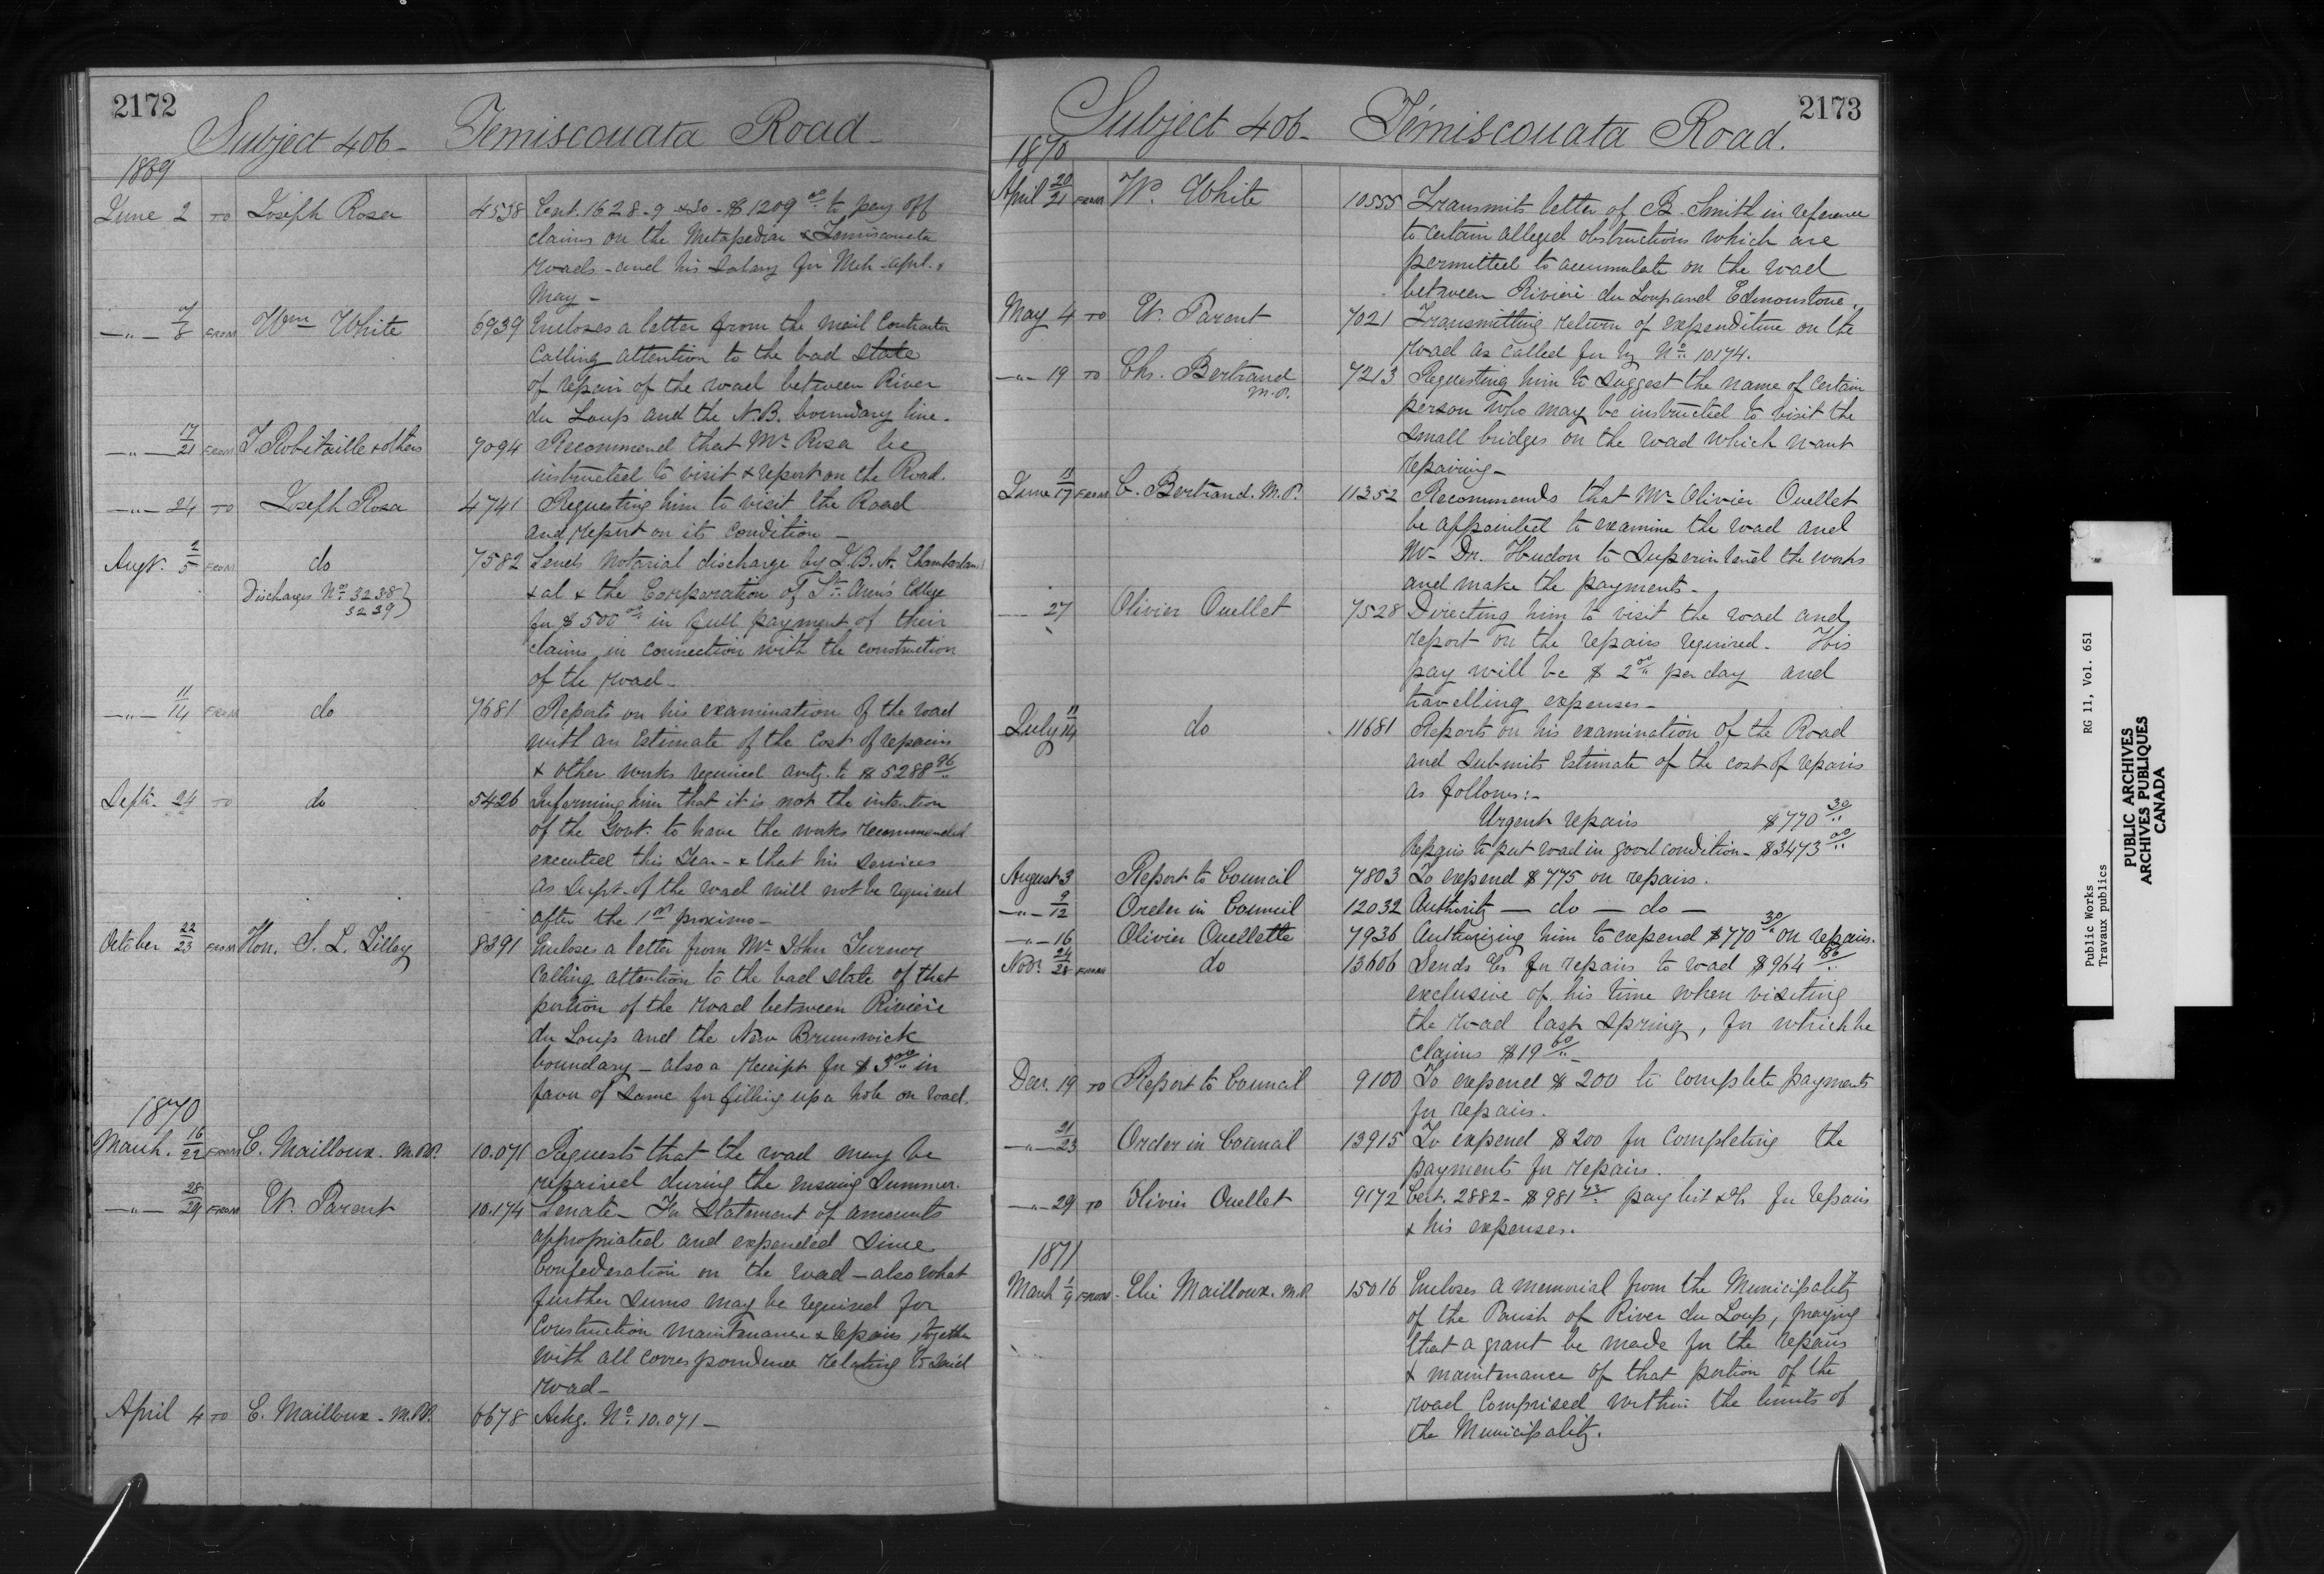 2172
Subject 406 - Temiscouata Road -
1869
June 2 TO Joseph Rosa 4538 Cert. 1628-9 & 30 - $1209 00 to pay off
claims on the Metapedia & Temiscouata
roads - and his salary for Mch. Apl. &
May -
-"- 7/8 FROM Wm White 6939 Encloses a letter from the Mail Contractor
calling attention to the bad state
of repair of the road between River
du Loup and the N.B. boundary line.
-"- 17/21 FROM T. Robitaille & others 7094 Recommend that Mr Rosa be
instructed to visit & report on the Road.
-"- 24 TO Joseph Rosa 4741 Requesting him to visit the Road
and report on its condition -
Augt. 2/5 FROM do 7582 Sends Notarial discharge by J.B.A. Chamberland
Discharges No. 3238 & al & the Corporation of St. Ann's College
3239 for $500 00 in full payment of their
claims in connection with the construction
of the road -
-"- 11/14 FROM do 7681 Reports on his examination of the road
with an Estimate of the Cost of repairs
& other works required amtg. to $5288 96
Septr. 24 TO do 5426 Informing him that it is not the intention
of the Govt. to have the works recommended
executed this Year - & that his services
as Supt. of the road will not be required
after the 1st proximo -
October 22/23 FROM Hon. S. L. Tilley 8391 Encloses a letter from Mr John Turner
calling attention to the bad state of that
portion of the road between Riviere
du Loup and the New Brunswick
boundary - also a receipt for $3 00 in
favor of same for filling up a hole on road.
1870
March. 16/22 FROM E. Mailloux. M.P. 10.071 Requests that the road may be
repaired during the ensuing Summer.
-"- 28/29 FROM E. Parent 10.174 Senate - For Statement of amounts
appropriated and expended since
Confederation on the road - also what
further sums may be required for
Construction maintenance & repairs, together
with all correspondence relating to said
road -
April 4 TO E. Mailloux - M.P. 6678 Ackg. No. 10.071 -
2173
Subject 406 - Témiscouata Road.
1870
April 20/21 FROM W. White 10555 Transmits letter of B. Smith in reference
to certain alleged obstructions which are
permitted to accumulate on the road
between Riviere du Loup and Edmonstone.
May 4 TO E. Parent 7021 Transmitting return of expenditure on the
road as called for by No. 10174.
-"- 19 TO Chs. Bertrand 7213 Requesting him to suggest the name of certain
M.P. person who may be instructed to visit the
small bridges on the road which want
repairing -
June 11/17 FROM C. Bertrand. M.P. 11352 Recommends that Mr Olivier Ouellet
be appointed to examine the road and
Mr Dr. Hudon to Superintend the works
and make the payments -
27 Olivier Ouellet 7528 Directing him to visit the road and
report on the repairs required. His
pay will be $2 00 per day and
travelling expenses -
July 11/14 do 11681 Reports on his examination of the Road
and submits Estimate of the cost of repairs
as follows:-
Urgent repairs $770 30
Repairs to put road in good condition - $3473 00
August 3 Report to Council 7803 To expend $775 on repairs.
-"- 9/12 Order in Council 12032 Authority - do - do -
-"- 16 Olivier Ouellette 7936 Authorizing him to expend $770 30 on repairs.
Novr. 24/28 FROM do 13606 Sends for repairs to road $964 86
exclusive of his time when visiting
the road last spring, for which he
claims $19 60 -
Decr. 19 TO Report to Council 9100 To expend $200 to complete payments
for repairs.
-"- 21/23 Order in Council 13915 To expend $200 for completing the
payments for repairs.
-"- 29 TO Olivier Ouellet 9172 Cert. 2882 - $981 43 pay list &c for repairs
& his expenses.
1871
March 1/9 FROM Elie Mailloux. M.P. 15016 Encloses a memorial from the Municipality
of the Parish of River du Loup, praying
that a grant be made for the repairs
& maintenance of that portion of the
road comprised within the limits of
the Municipality.
Public Works RG 11, Vol. 651
Travaux publics
PUBLIC ARCHIVES
ARCHIVES PUBLIQUES
CANADA